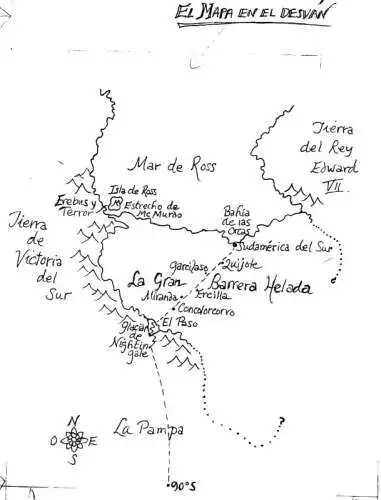 EL MAPA EN EL DESVÁN
Tierra
del Rey
Edward
VII.
Mar de Ross
Isla de Ross
Erebus y
Terror
Estrecho de
McMurdo
Bahía
de las
Orcas
Sudamérica del Sur
Tierra
de
Victoria
del
Sur
Garcilaso
Quijote
La Gran
Barrera Helada
Miranda
Ercilla
Concolorcorvo
El Paso
Glaciar
de
Nightin
gale
?
?
N
O
E
S
La Pampa
90°S